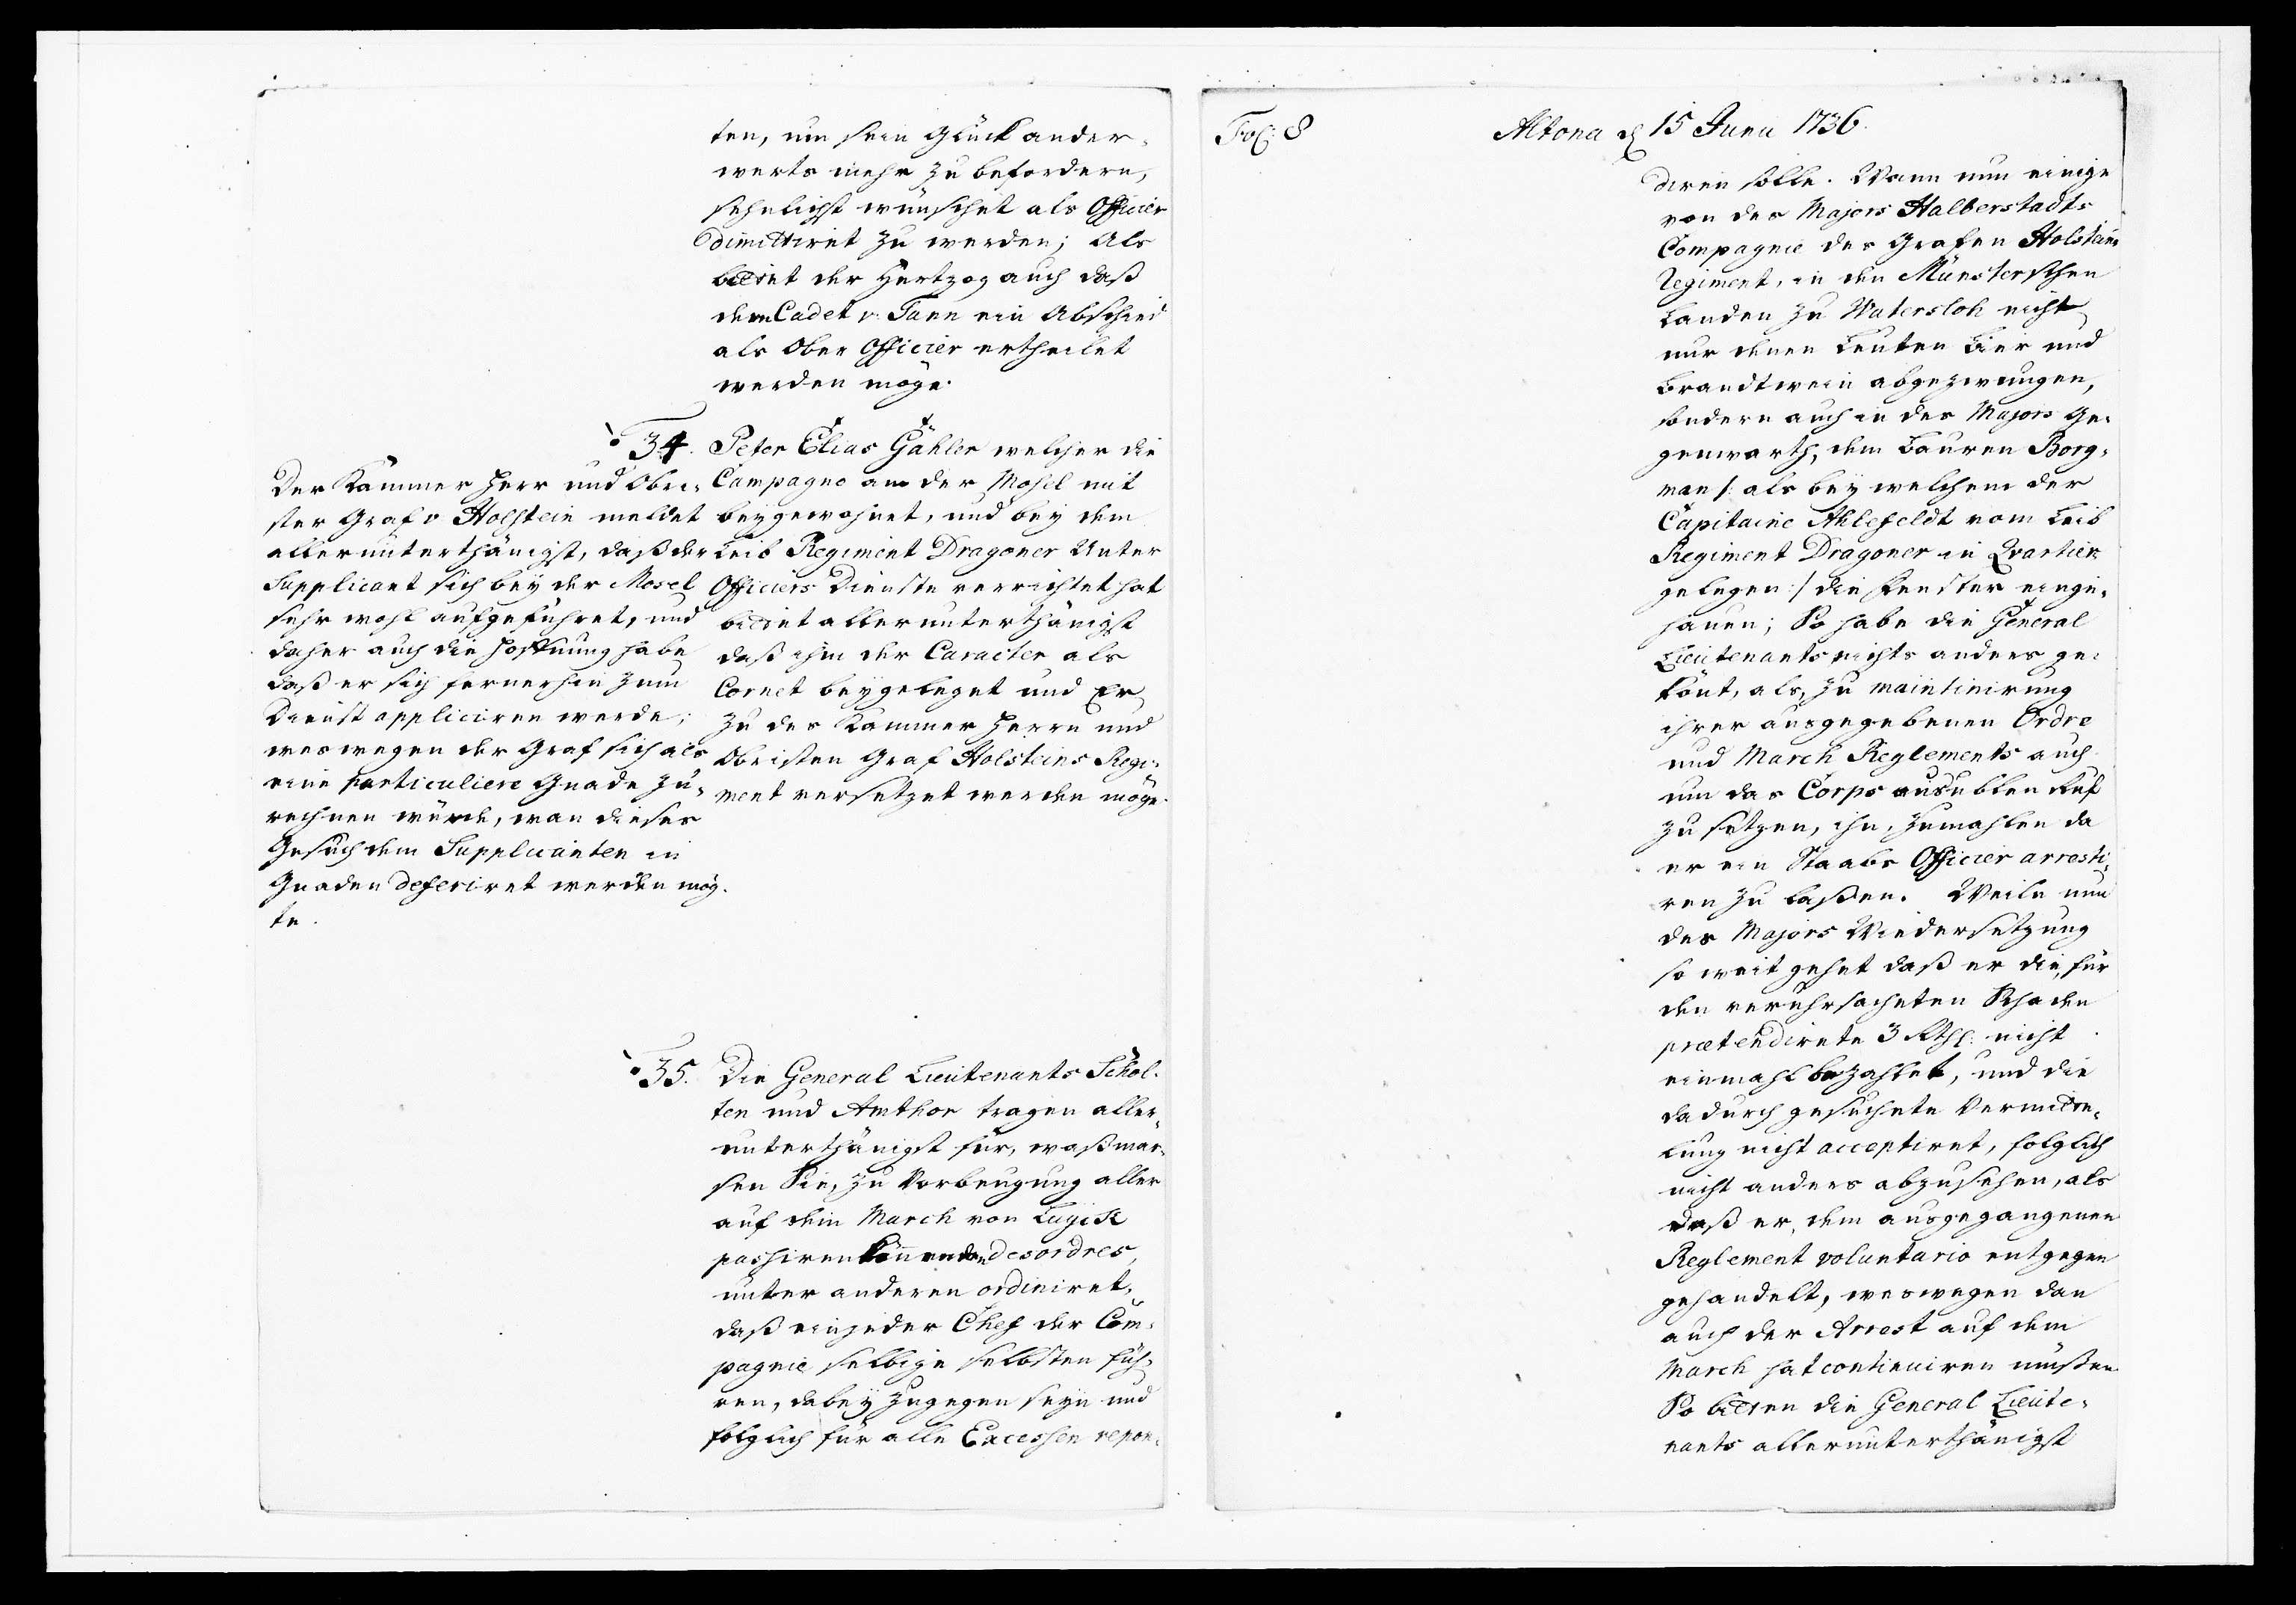 ten, um sein Glück ander¬
werts mehr zu befordern,
sehnlichst wünschet als Officier
dimittiret zu werden; Als
bittet der Hertzog auch daß
dem Cadet v: Tann ein Abschied
als Ober Officier ertheilet
werden möge.
34.
Peter Elias Gähler welcher die
Campagne an der Mosel mit
beygewohnet, und bey dem
Leib Regiment Dragoner Unter
Officiers Dienste verrichtet hat
bittet allerunterthänigst
daß ihm der Caracter als
Cornet beygeleget und Er
zu des Kammer Herrn und
Obristen Graf Holsteins Regi¬
ment versetzet werden möge.
Der Kammer Herr und Obri¬
ster Graf v Holstein meldet
allerunterthänigst, daß der
Supplicant sich bey der Mosel
sehr wohl aufgeführet, und
daher auch die Hoffnung habe
daß er sich fernerhin zum
Dienst appliciren werde;
weswegen der Graf sich als
eine particuliere Gnade zu¬
rechnen würde, wan dieses
Gesuch dem Supplicanten in
Gnaden deferiret werden mög¬
te.
35.
Die General Lieutenants Schol¬
ten und Amthor tragen aller¬
unterthänigst für, waßmas¬
sen Sie, zu Vorbeugung aller
auf dem March von
passiren könnenden desordres,
unter anderen ordiniret,
daß ein jeder Chef der Com¬
pagnie selbige selbsten füh¬
ren, dabey zugegen seyn und
folglich für alle Excessen repon¬
Fol: 8
Altona d 15 Junii 1736.
diren solle. Wann nun einige
von des Majors Halberstadts
Compagnie des Grafen Holstein
Regiment, in den Münsterschen
Landen zu Watersloh nicht
nur denen Leuten Bier und
Brandtwein abgezwungen,
sondern auch in des Majors Ge¬
genwarth, dem Bauren Borg¬
man /: als bey welchem der
Capitaine Ahlefeldt vom Leib
Regiment Dragoner in Quartier
gelegen :/ die Fenster einge¬
hauen; So habe die General
Lieutenants nichts anders ge¬
könt, als, zu maintinirung
ihrer ausgegebenen Ordre
und March Reglements auch
um das Corps aus üblen Ruf
zu setzen, ihn, zumahlen da
er ein Staabs Officier arresti¬
ren zu laßen. Weile nun
des Majors Wiedersetzung
so weit gehet daß er die, für
den veruhrsacheten Schaden
prætendirete 3 Rthl: nicht
einmahl bezahlet, und die
dadurch gesuchete Vermitte¬
lung nicht acceptiret, folglich
nicht anders abzusehen, als
daß er, dem ausgegangenen
Reglement voluntario entgegen
gehandelt, weswegen dan
auch der Arrest auf dem
March hat continuiren müßen
So bitten die General Lieute¬
nants allerunterthänigst